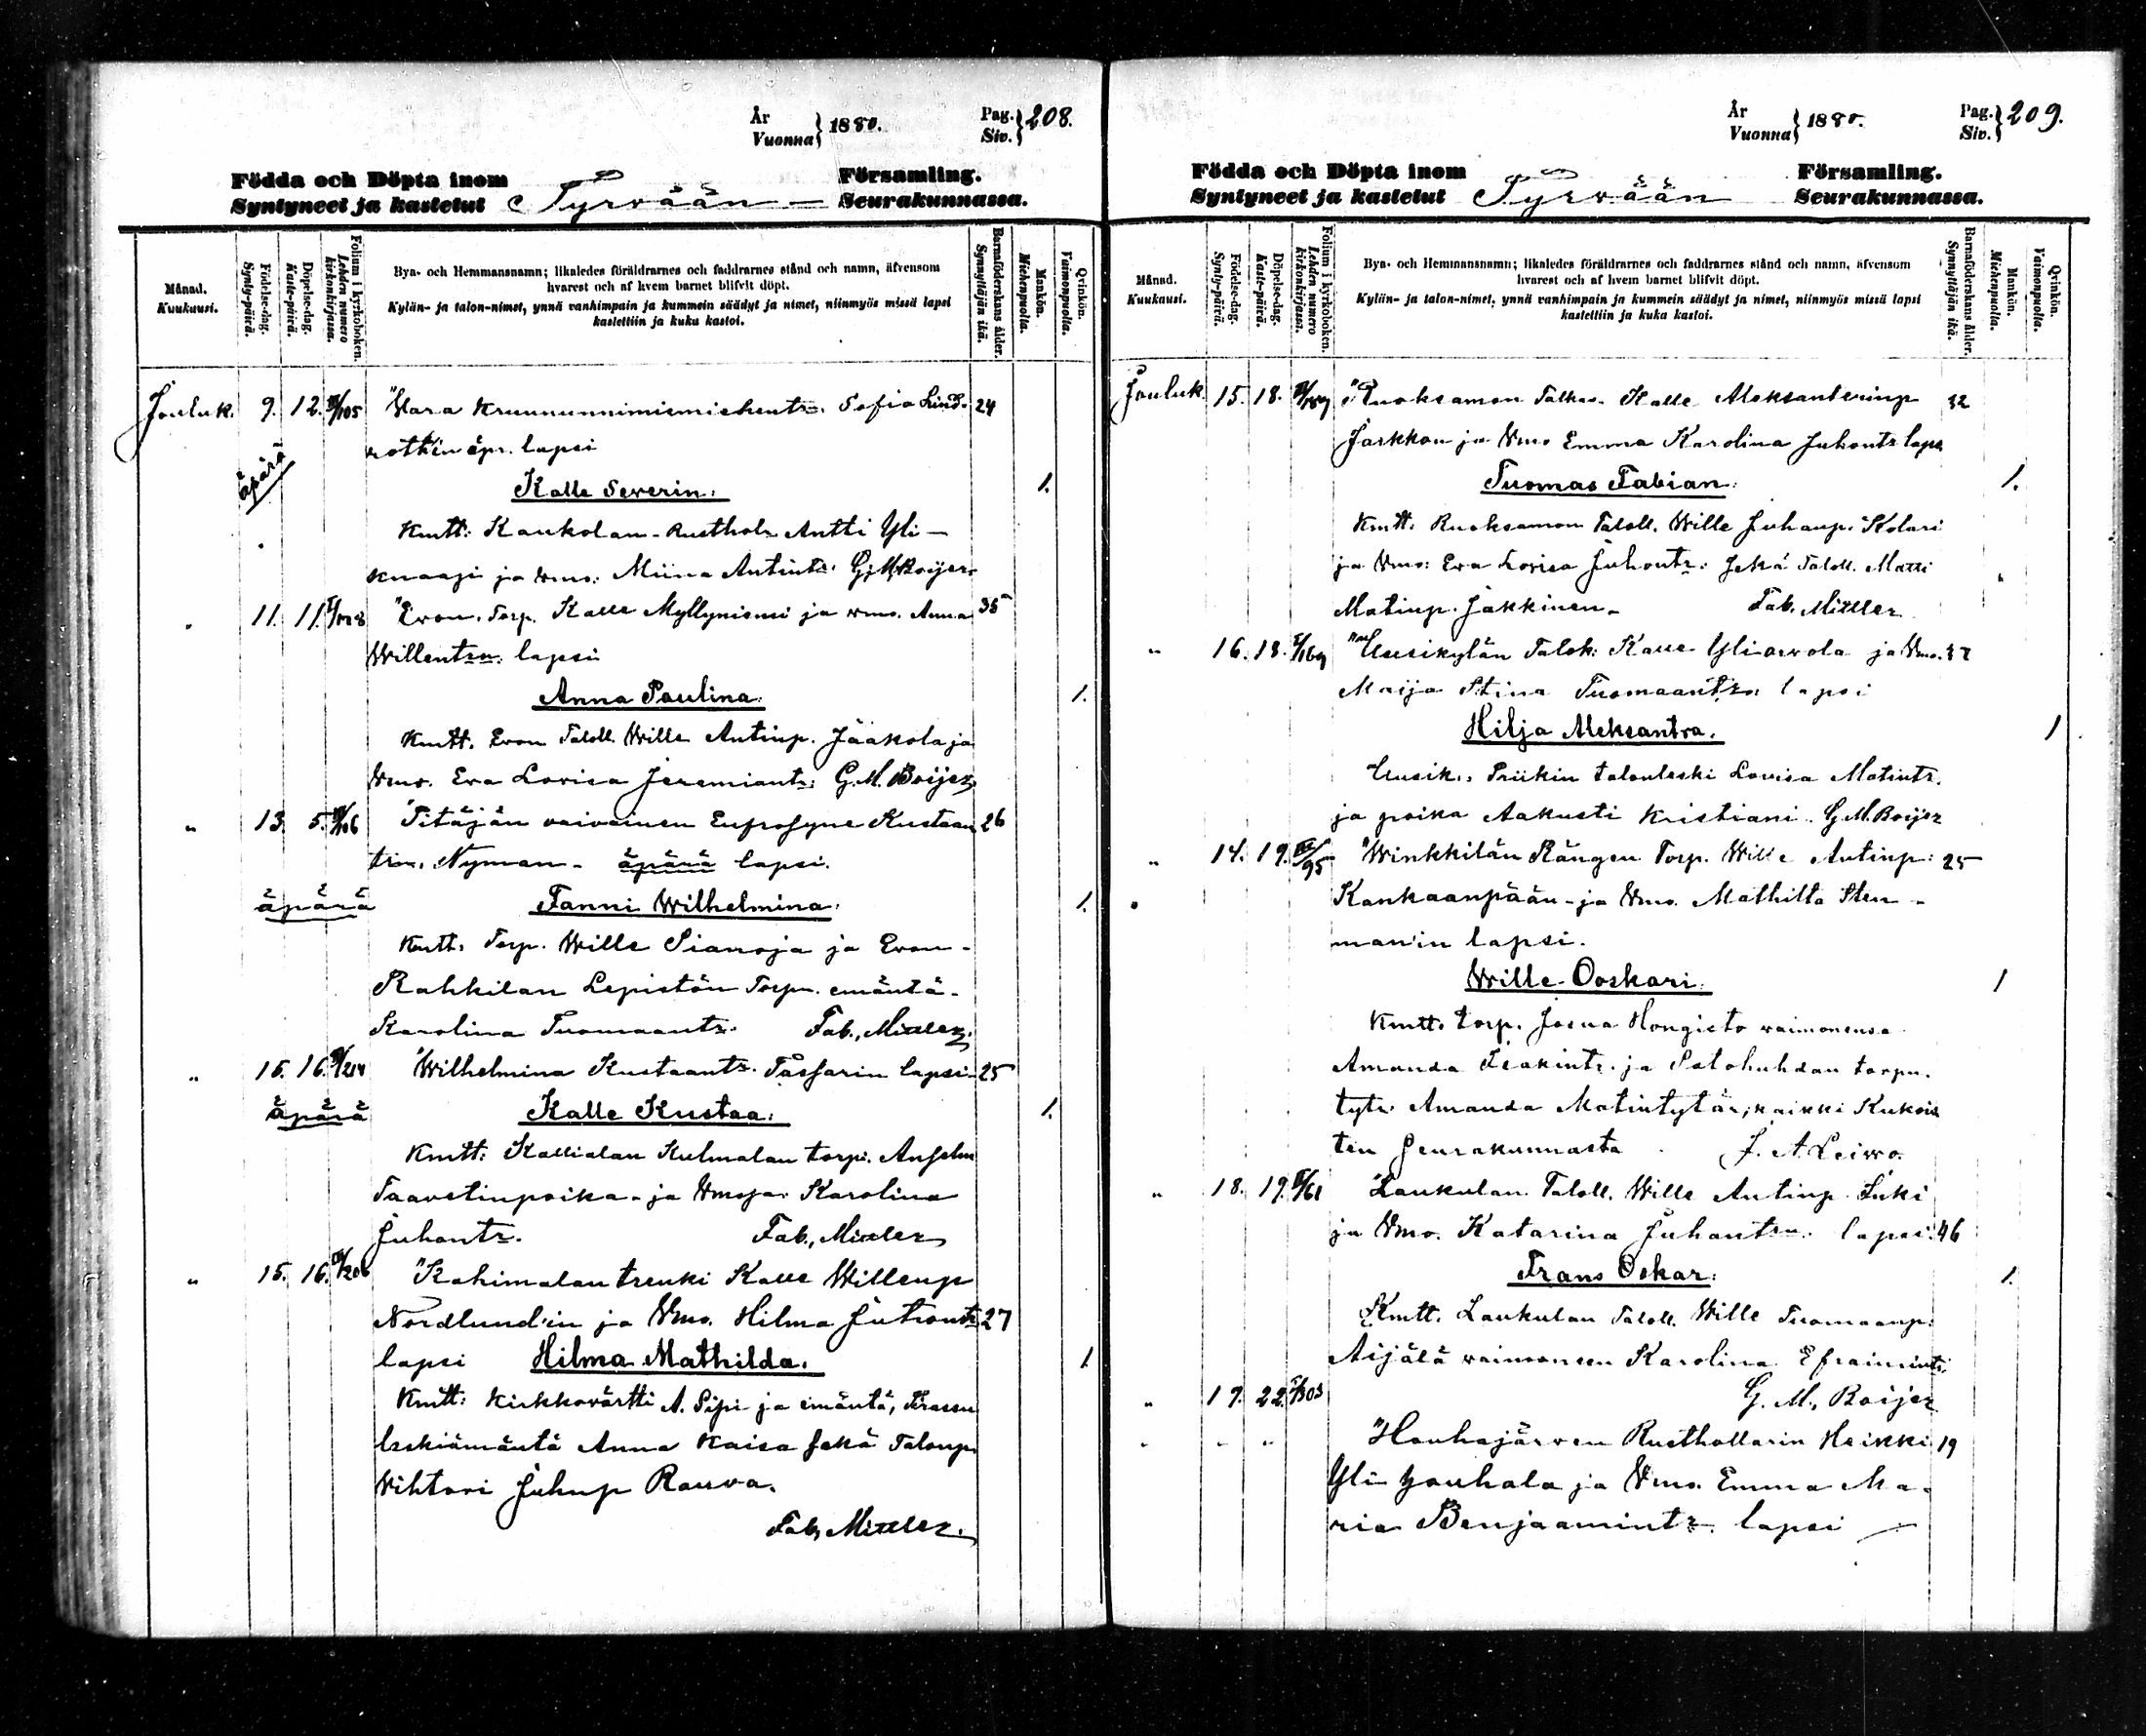 År
Vuonna } 1880.
Pag.
Siv. } 208.
Födda och Döpta inom
Syntyneet ja kastetut
Tyrvään
Församling.
Seurakunnassa.
Månad.
Kuukausi.
Födelse-dag.
Synty-päivä.
Döpelse-dag.
Kaste-päivä.
Folium i kyrkoboken.
Lehden numero kirkonkirjassa.
Bya- och Hemmansnamn; likaledes föräldrarnes och faddrarnes stånd och namn, äfvensom
hvarest och af hvem barnet blifvit döpt.
Kylän- ja talon-nimet, ynnä vanhimpain ja kummein säädyt ja nimet, niinmyös missä lapsi
kastettiin ja kuka kastoi.
Barnaföderskans ålder.
Synnyttäjän ikä.
Mankön.
Miehenpuolta.
Qvinkön.
Vaimonpuolta.
Jouluk. 9. 12. /105 Sofia Lind- 24
äpr. lapsi
äpärä
Kalle Severin. 1.
Kmtt: Kaukolan Rusthol. Antti Yli-
knaapi ja vmo. Miina Antintr. G. M. Boijer.
" 11. 11. Evon. Torp. Kalle Myllyniemi ja vmo. Anna 35
Willentrn. lapsi
Anna Paulina. 1.
Kmtt. Evon Taloll. Wille Antinp. Jaakola ja
Vmo. Eva Lovisa Jeremiantr. G. M. Boijer
" 13. 5. vaivainen Eufrosyne Kustaan 26
Nyman - äpärä lapsi.
äpärä Fanni Wilhelmina. 1.
Kmtt. Torp. Wille Sianoja ja Evon-
Rahkilan Lepistön Torpn. emäntä-
Karolina Tuomaantr. Fab. Mixller
" 15. 16. /214 Wilhelmina Kustaantr. lapsi 25
äpärä Kalle Kustaa. 1.
Kmtt: Kallialan Kulmalan torp. Anshelm
Taavetinpoika ja Vmo Karolina
Juhontr. Fab. Mixller
" 15. 16. /206 Kahimalan trenki Kalle Willenp
Nordlund'in ja Vmo. Hilma 27
lapsi Hilma Mathilda. 1
Kmtt: Kirkkovärtti A. Pipi ja emäntä,
leskiämäntä Anna Kaisa sekä Talonp
Wihtori Juhnp Rauva.
Fab. Mixller.
År
Vuonna } 1880.
Pag.
Siv. } 209.
Födda och Döpta inom
Syntyneet ja kastetut
Tyrvään
Församling.
Seurakunnassa.
Månad.
Kuukausi.
Födelse-dag.
Synty-päivä.
Döpelse-dag.
Kaste-päivä.
Folium i kyrkoboken.
Lehden numero kirkonkirjassa.
Bya- och Hemmansnamn; likaledes föräldrarnes och faddrarnes stånd och namn, äfvensom
hvarest och af hvem barnet blifvit döpt.
Kylän- ja talon-nimet, ynnä vanhimpain ja kummein säädyt ja nimet, niinmyös missä lapsi
kastettiin ja kuka kastoi.
Barnaföderskans ålder.
Synnyttäjän ikä.
Mankön.
Miehenpuolta.
Qvinkön.
Vaimonpuolta.
Jouluk. 15. 18. Ruoksamon Kalle Aleksanterinp 32
Jaskkan ja Vmo Emma Karolina Juhontr laps
Tuomas Fabian. 1.
Kmtt. Ruoksamon Taloll. Wille Juhanp. Kolari
ja Vmo: Eva Lovisa Juhontr. sekä Taloll. Matti
Matinp. Jakkinen - Fab. Mixller
" 16. 18. /169 Uusikylän Talok: Kalle Yliarvola ja Vmo. 37
Maija Stina Tuomaantr. lapsi
Hilja Aleksantra. 1
Uusik. Priikin talonleski Lovisa Matintr.
ja poika Aakusti Kristiani. G. M. Boijer
" 14. 19. /95 Winkkilän Rängen Torp. Wille Antinp: 25
Kankaanpään ja Vmo. Mathilta Sten-
man'in lapsi.
Wille Ooskari. 1
Kmtt. torp. Josua Hongisto vaimonensa
Amanda Isakintr. ja Satohuhdan torpn.
tytr. Amanda Matintytär, kaikki
ten seurakunnasta J. A. Leivo.
" 18. 19. /61 Laukulan Taloll. Wille Antinp.
ja Vmo. Katarina Juhantrn. lapsi 46
Frans Oskar. 1.
Kmtt. Laukulan Taloll. Wille Tuomaanp.
Äijälä vaimoneen Karolina Efraimintr.
" 17. 22. /303 G. M. Boijer
" " " Houhajärven Rusthollarin Heikki 19
Yli houhala ja Vmo. Emma Ma-
ria Benjaamintr. lapsi -